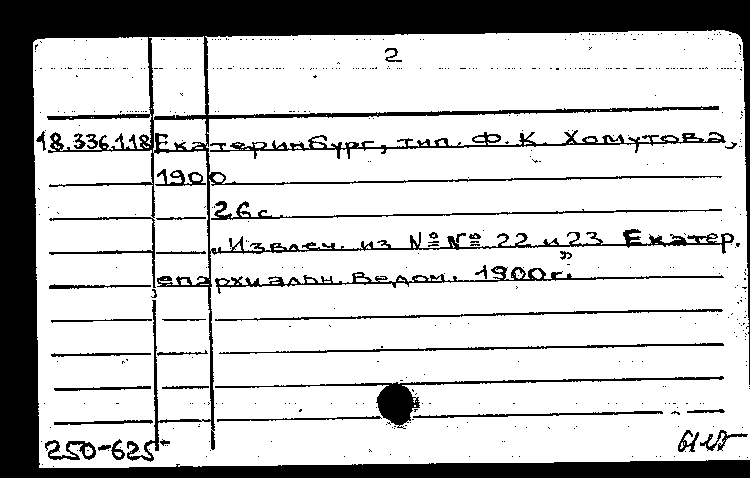 2
18.336.1.18 Екатеринбург, тип. Ф. К. Хомутова,
1900.
26 с.
„Извлеч. из №№ 22 и 23 Екатер.
епархиальн. Ведом. 1900 г.”
250-625